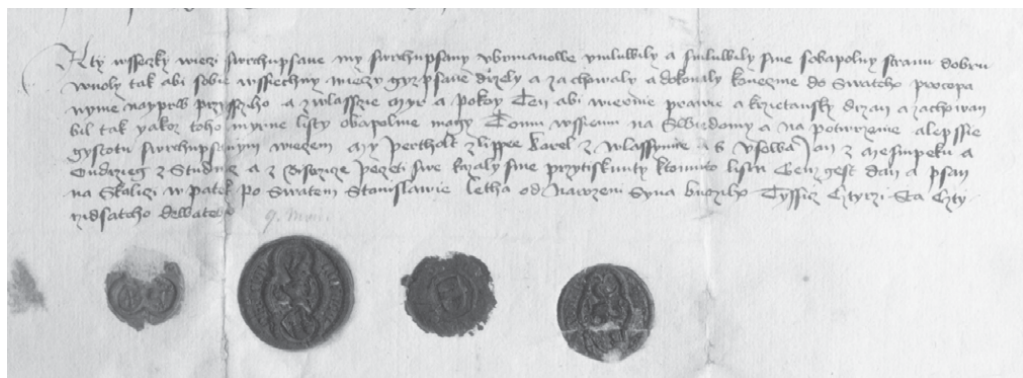 Kty wssczky wieczi swrchupsane my swrchupsany vbrmanowe vmluwily a smluwily sme sobapolnu stranu dobru
wuoly tak abi sobie wssiechny wieczy gyz psane dirzely a zachowaly a dokonaly koneczne do Swateho procopa
wyme nayprw przissziho a zwlasscie myr a pokoy Ten abi wiernie prawie a krzestansky drzan a zachowan
bil tak yakoz toho myrne listy obapolne magy Tomu wssiemu na Swiedomy a na potwrzenie a lepssie
gystotu swrchupsanym wieczem My Pertholt z lippee Karel z wlassymie a S Vsowa Jan z Mesimpeku a
Ondrzieg z Studnicz a z peczeti swe kazaly sme przytisknuty ktomuto listu Genz gest dan a psan
na Skalizi w patek po swatem Stanislawie letha od narozeni Syna buozieho Tyssicz Cztyrzi Sta Czty
rzidsateho dewateho 9. Maii